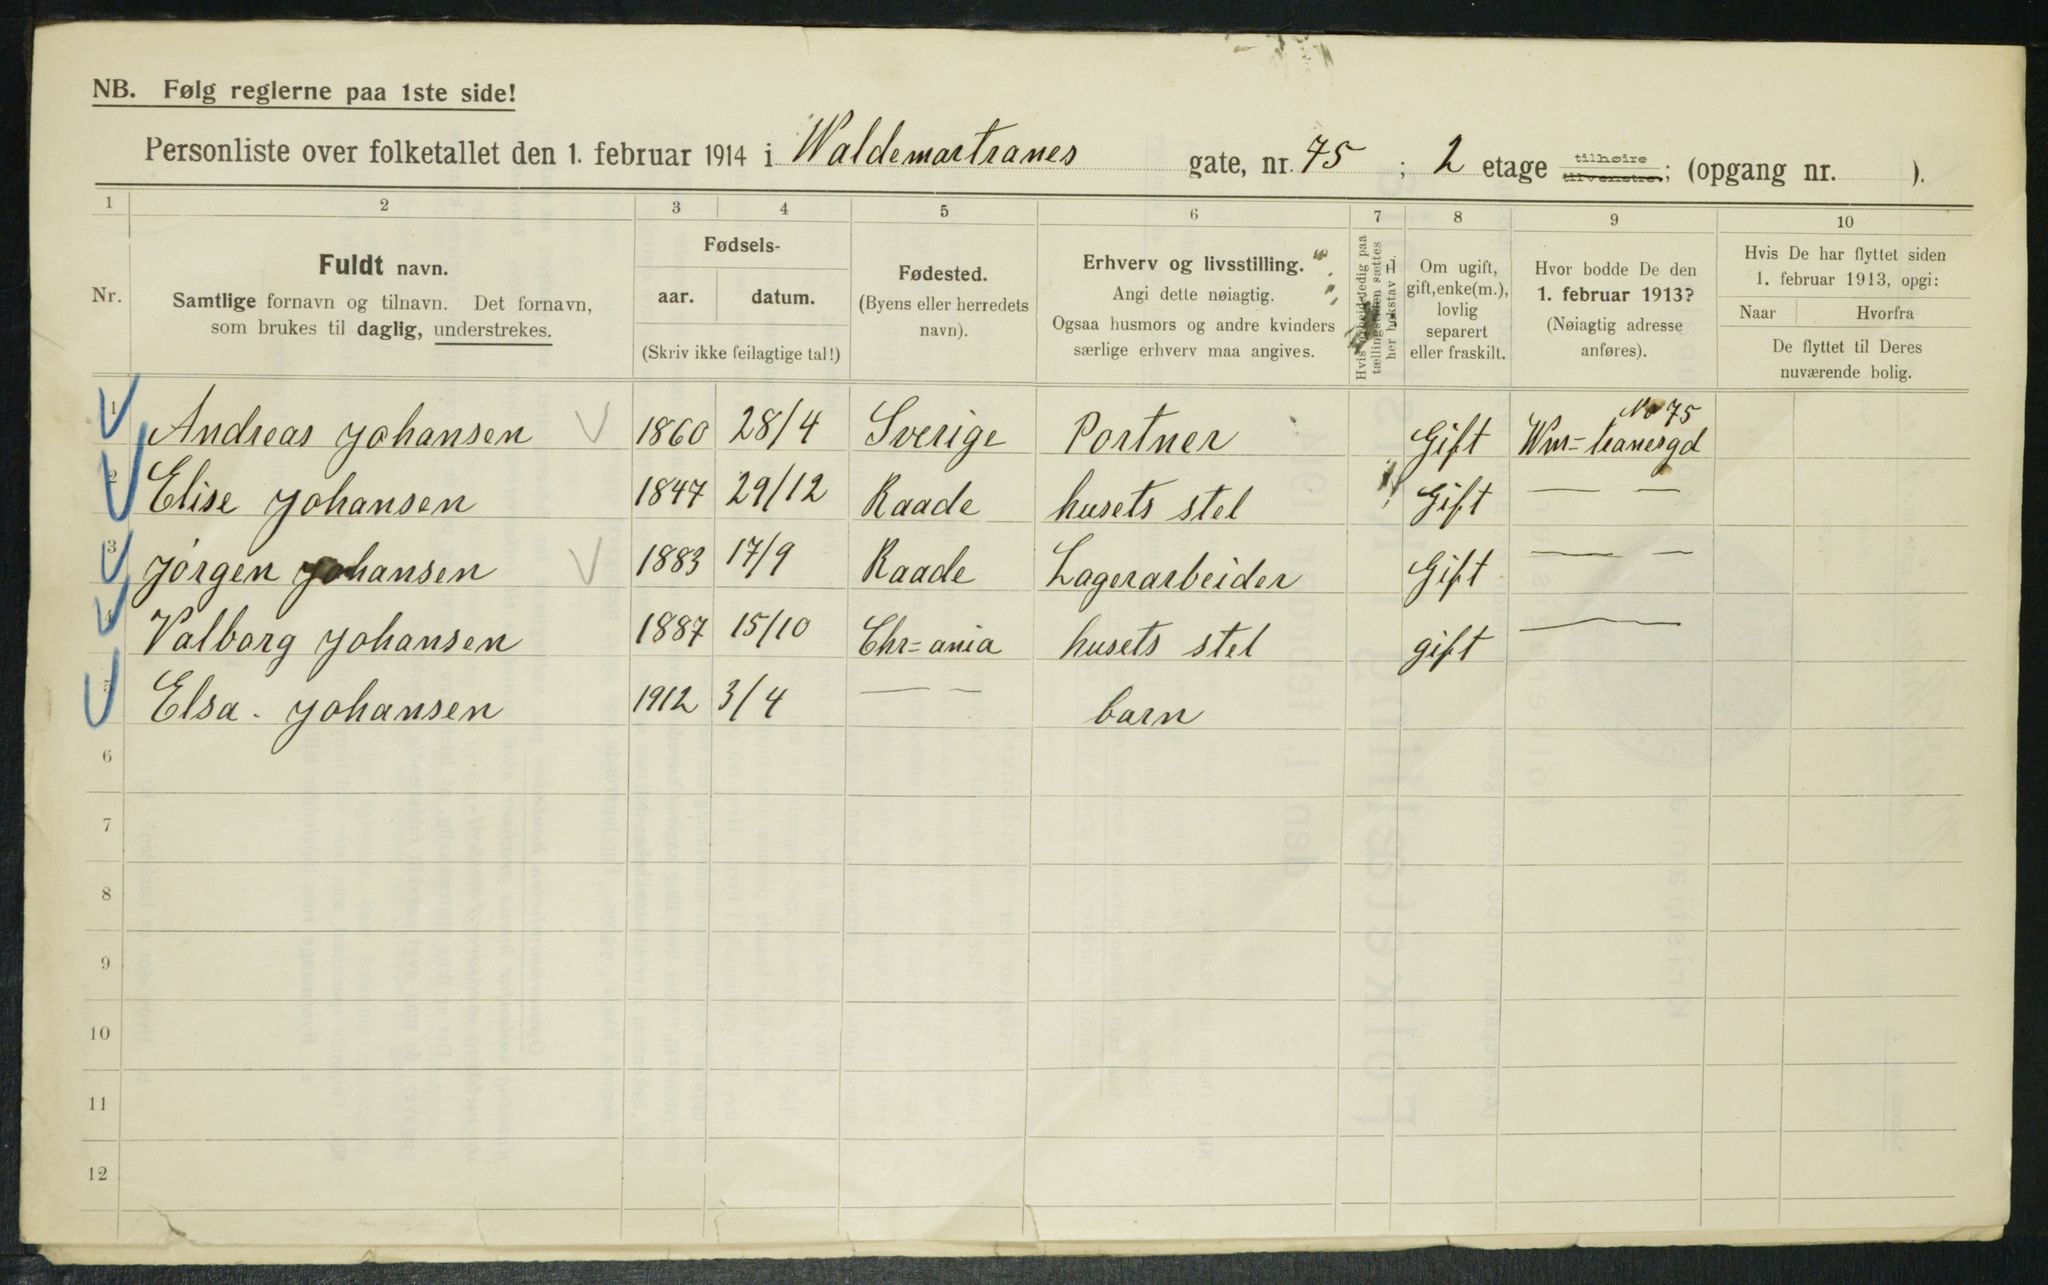 NB. Følg reglerne paa 1ste side!
Personliste over folketallet den 1. februar 1914 i Waldemartranes gate, nr. 75 ; 2 etage tilhøire tilvenstre.; (opgang nr. ).
1 2 3 4 5 6 7 8 9 10
Nr.
Fuldt navn.
Samtlige fornavn og tilnavn. Det fornavn,
som brukes til daglig, understrekes.
Fødsels-
aar. datum.
(Skriv ikke feilagtige tal!)
Fødested.
(Byens eller herredets
navn).
Erhverv og livsstilling.
Angi dette nøiagtig.
Ogsaa husmors og andre kvinders
særlige erhverv maa angives.
Hvis arbeidsledig paa
tællingsdagen sættes
her bokstav
Om ugift,
gift, enke(m.),
lovlig
separert
eller fraskilt.
Hvor bodde De den
1. februar 1913?
(Nøiagtig adresse
anføres).
Hvis De har flyttet siden
1. februar 1913, opgi:
Naar Hvorfra
De flyttet til Deres
nuværende bolig.
No 75
1 Andreas Johansen 1860 28/4 Sverige Portner Gift Wm=tranesgd
2 Elise Johansen 1847 29/12 Raade husets stel Gift — —
3 Jørgen Johansen 1883 17/9 Raade Lagerarbeider Gift — —
4 Valborg Johansen 1887 15/10 Chr=ania husets stel gift —
5 Elsa. Johansen 1912 3/4 — — barn
6
7
8
9
10
11
12